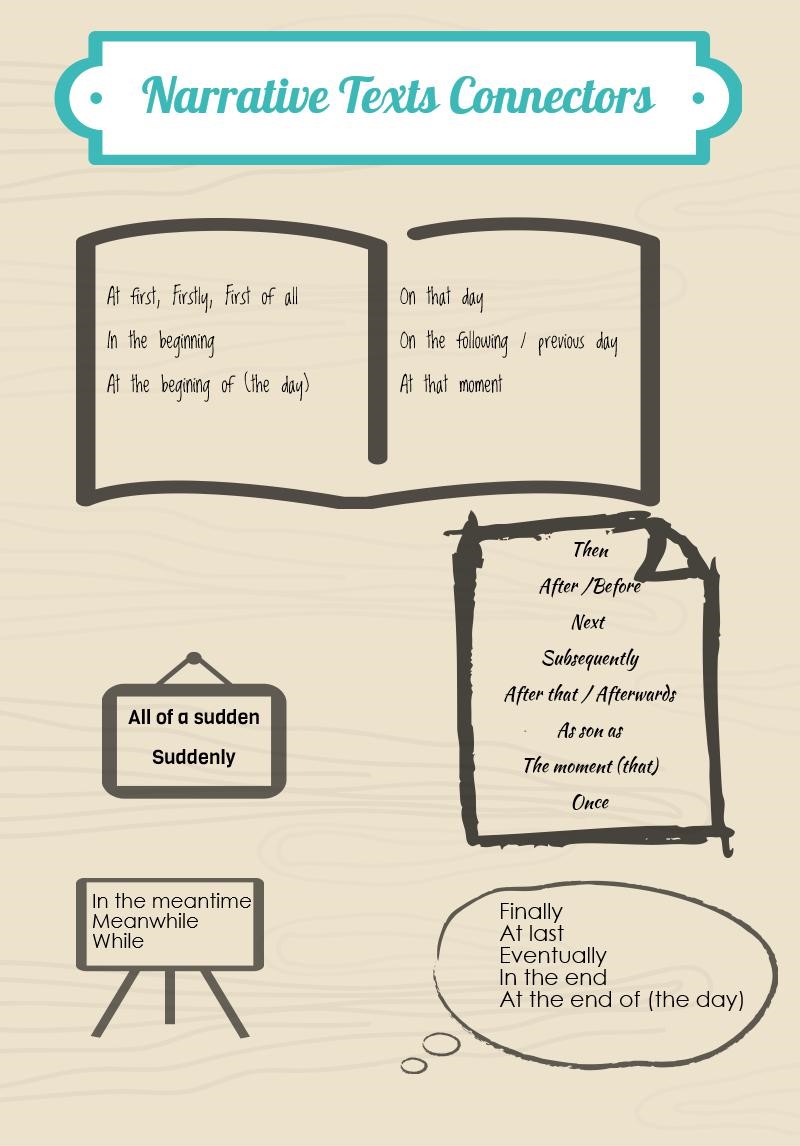 Narrative Texts Connectors
At first, Firstly, First of all
In the beginning
At the begining of (the day)
On that day
On the following / previous day
At that moment
Then
After /Before
Next
Subsequently
After that / Afterwards
As son as
The moment (that)
Once
All of a sudden
Suddenly
In the meantime
Meanwhile
While
Finally
At last
Eventually
In the end
At the end of (the day)